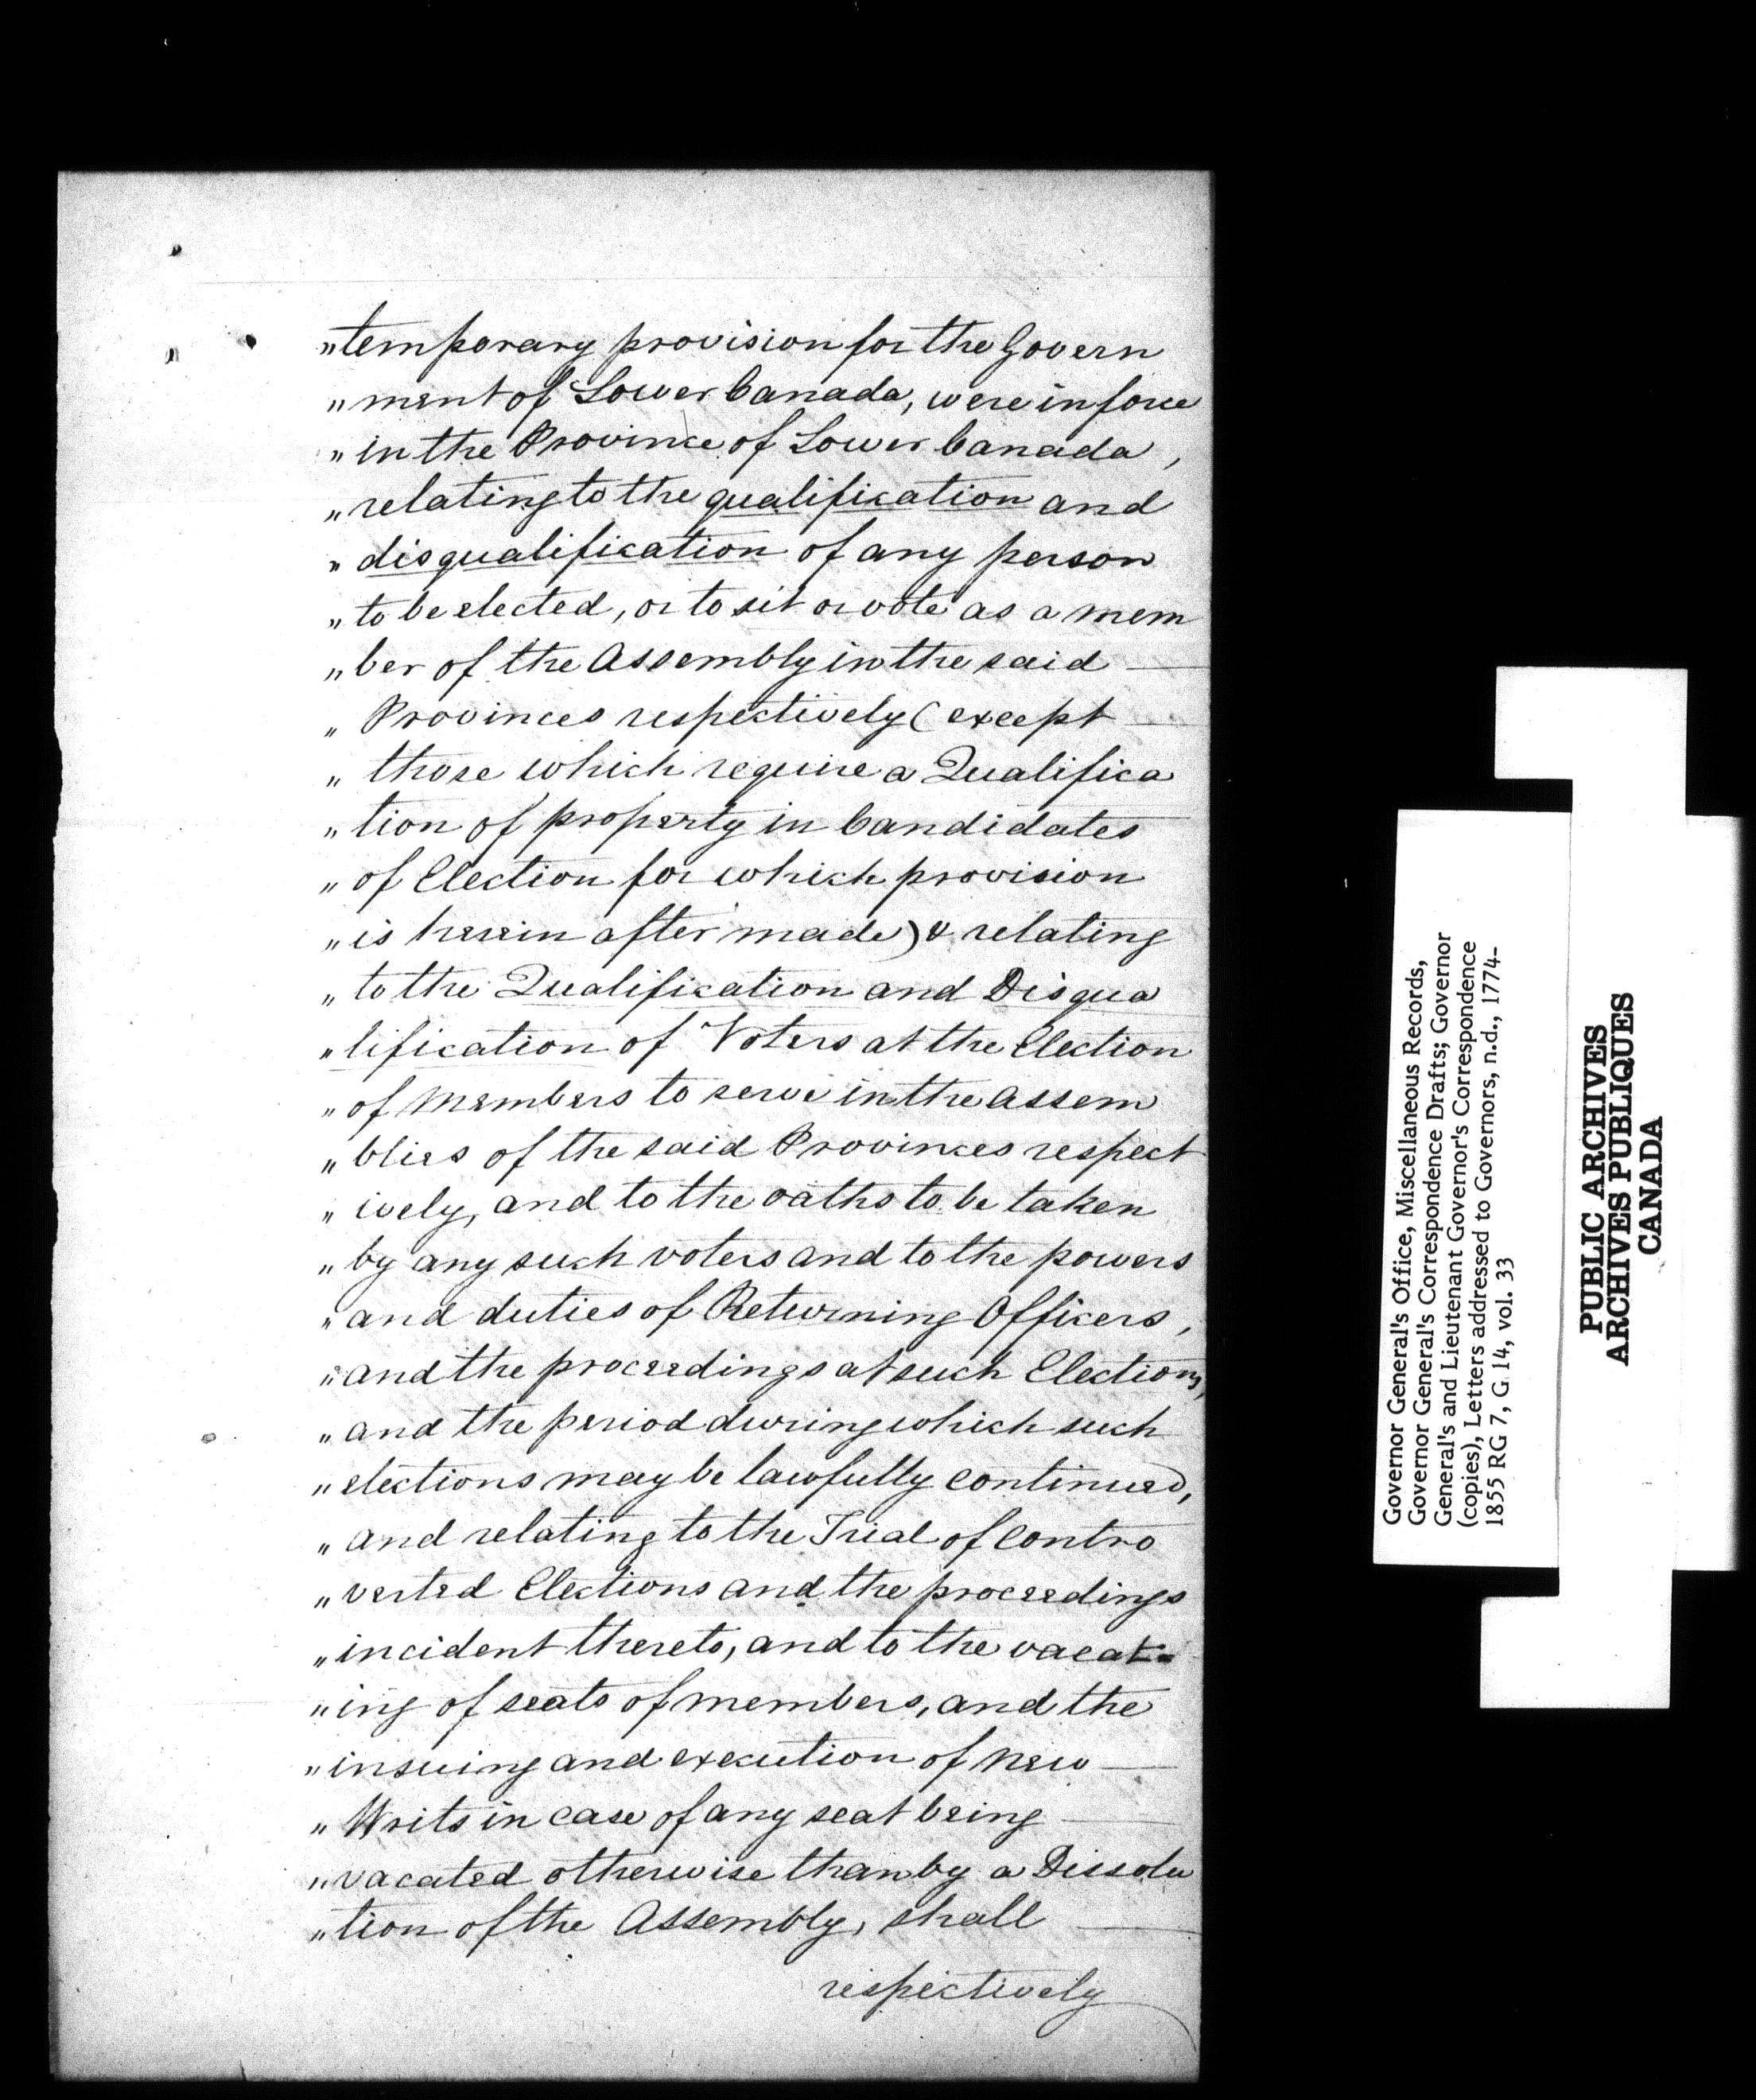 "temporary provision for the Govern
"ment of Lower Canada, were in force
"in the Province of Lower Canada,
"relating to the qualification and
"disqualification of any person
"to be elected, or to sit or vote as a mem
"ber of the Assembly in the said —
"Provinces respectively (except —
"those which require a Qualifica
"tion of property in Candidates
"of Election for which provision
"is herein after made) & relating
"to the Qualification and Disqua
"lification of Voters at the Election
"of Members to serve in the Assem
"blies of the said Provinces respect
"ively, and to the oaths to be taken
"by any such voters and to the powers
"and duties of Returning Officers,
"and the proceedings at such Elections,
"and the period during which such
"elections may be lawfully continued,
"and relating to the Trial of Contro
"verted Elections and the proceedings
"incident thereto, and to the vacat-
"ing of seats of members, and the
"insuing and execution of new —
"Writs in case of any seat being —
"vacated otherwise than by a Dissolu
"tion of the Assembly, shall —
respectively
Governor General's Office, Miscellaneous Records,
Governor General's Correspondence Drafts; Governor
General's and Lieutenant Governor's Correspondence
(copies), Letters addressed to Governors, n.d., 1774-
1855 RG 7, G 14, vol. 33
PUBLIC ARCHIVES
ARCHIVES PUBLIQUES
CANADA